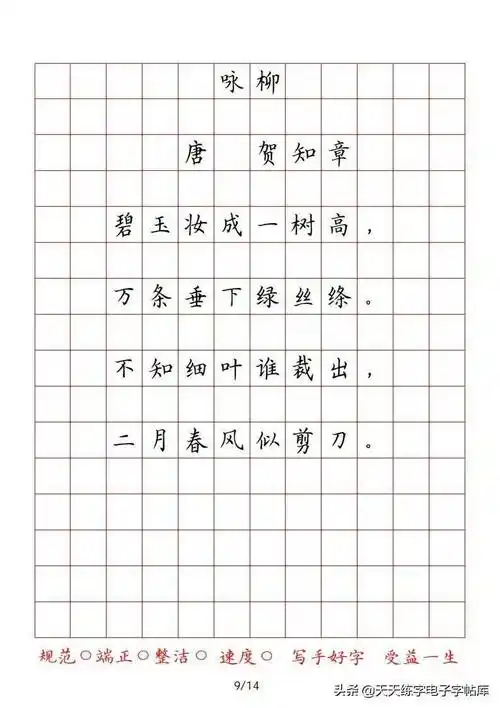 咏柳
唐 贺知章
碧玉妆成一树高，
万条垂下绿丝绦。
不知细叶谁裁出，
二月春风似剪刀。
规范○端正○整洁○ 速度○ 写手好字 受益一生
9/14
头条@天天练字电子字帖库